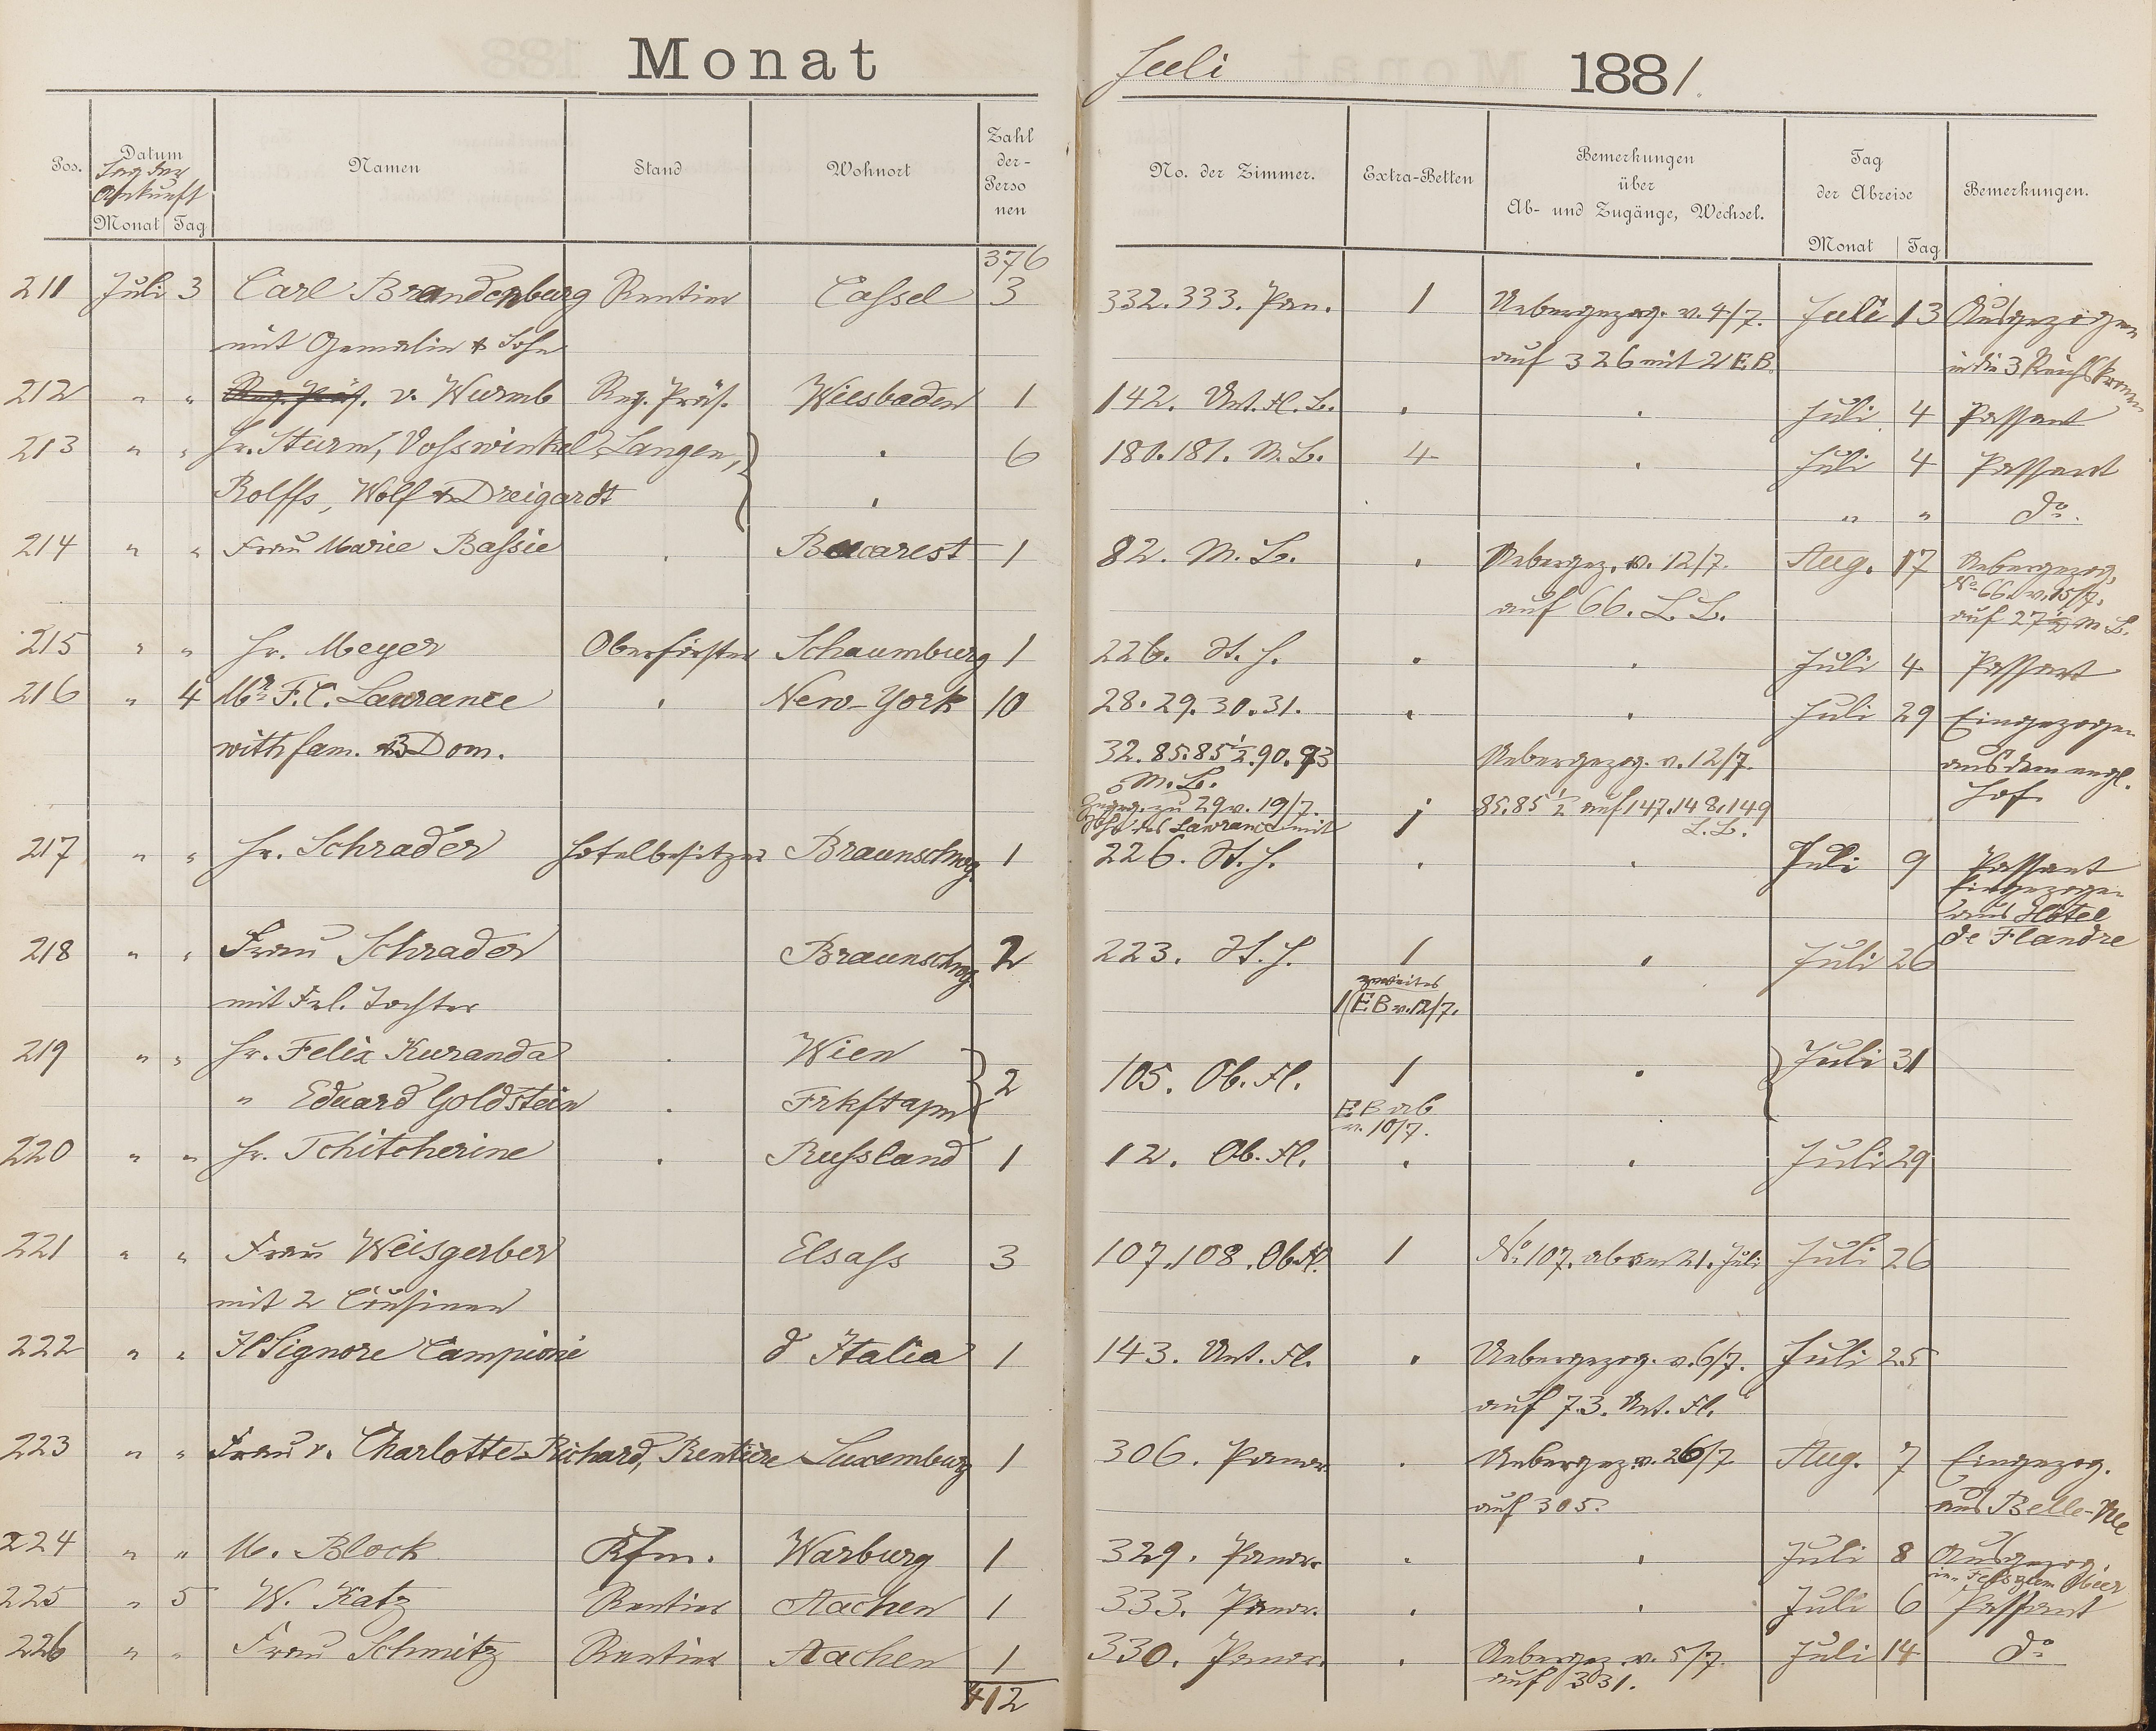 Monat
Juli 1881.
Pos. Datum Namen Stand Wohnort Zahl der- Perso nen No. der Zimmer. Extra-Betten Bemerkungen über Ab- und Zugänge, Wechsel. Tag der Abreise Bemerkungen.
Tag der Ankunft
Monat Tag Monat Tag
376
211 Juli 3 Carl Brandenburg Rentier Cassel 3 332.333. Pan. 1 Uebergezog. v. 4/7. Juli 13 Ausgezogen
mit Gemalin & Sohn auf 326 mit 2 E.B. in die 3 Reichskronen
212 " " Reg. Präs. v. Wurmb Reg. Präs. Wiesbaden 1 142. Unt. Fl. L. . . Juli 4 Passant
213 " " Hr. Sturm, Vosswinkel, Langen, . 6 180.181. M. L. 4 . Juli 4 Passant
Rolffs, Wolf & Dreigardt . " " do.
214 " " Frau Marie Bassie . Bucarest 1 82. M. L. . Uebergez. v. 12/7. Aug. 17 Uebergezog.
No 66. v. 15/7.
auf 66. L. L. auf 27½ M. L.
215 " " Hr. Meyer Oberförster Schaumburg 1 226. St. H. . . Juli 4 Passant
216 " 4 Mr. F. C. Laurance . New-York 10 28.29.30.31. . . Juli 29 Eingezogen
with fam. & 3 Dom. 32.85.85½.90.93 Uebergezog. v. 12/7. aus dem engl.
M. L. Hof
zu 29 v. 19/7. 85.85½ auf 147.148.149
Sohn des Lawrance mit L. L.
217 " " Hr. Schrader Hotelbesitzer Braunschwg. 1 226. St. H. . . Juli 9 Passant
Eingezogen
aus Hôtel
218 " " Frau Schrader Braunschwg. 2 223. St. H. 1 . Juli 26 de Flandre
zweites
mit Frl. Tochter 1 E.B v. 12/7.
219 " " Hr. Felix Kuranda . Wien 2 105. Ob. Fl. 1 . Juli 31
" Eduard Goldstein . Frkft a/m E B ab .
v. 10/7.
220 " " Hr. Tchitcherine . Russland 1 12. Ob. Fl. . . Juli 29
221 " " Frau Weisgerber Elsass 3 107.108. Ob. Fl. 1 No. 107. ab am 21. Juli Juli 26
mit 2 Cousinen
222 " " Il Signore Campioni d Italia 1 143. Unt. Fl. . Uebergezog. v. 6/7. Juli 25
auf 73. Unt. Fl.
223 " " Frau v. Charlotte-Richard, Rentière Luxemburg 1 306. Panor. . Uebergez. v. 26/7. Aug. 7 Eingezog.
auf 305. aus Belle-Vue
224 " " M. Block Kfm. Warburg 1 329. Panor. . . Juli 8 Ausgezog.
225 " 5 W. Katz Rentier Aachen 1 333. Panor. . . Juli 6 Passant
226 " " Frau Schmitz Rentier Aachen 1 330. Panor. . Uebergez. v. 5/7. Juli 14 do
auf 331.
412